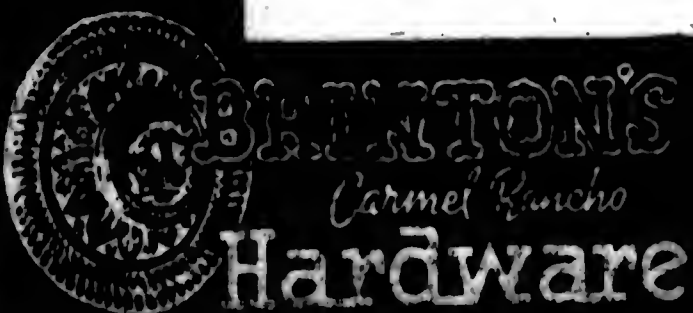 BRINTON'S
Carmel Rancho
Hardware